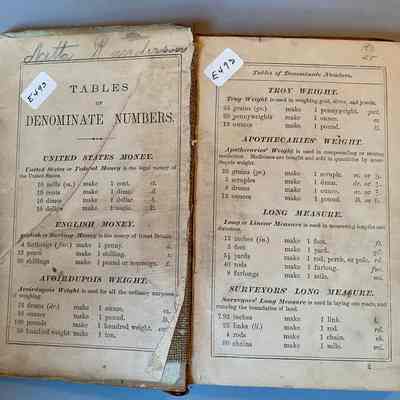 E493
TABLES
OF
DENOMINATE NUMBERS.
UNITED STATES MONEY.
United States or Federal Money is the legal money of
the United States.
10 mills (m.) make 1 cent. ct.
10 cents make 1 dime. d.
10 dimes make 1 dollar. $.
10 dollars make 1 eagle. E.
ENGLISH MONEY.
English or Sterling Money is the money of Great Britain.
4 farthings (far.) make 1 penny.
12 pence make 1 shilling.
20 shillings make 1 pound or sovereign. £.
AVOIRDUPOIS WEIGHT.
Avoirdupois Weight is used for all the ordinary purposes
of weighing.
16 drams (dr.) make 1 ounce.
16 ounces make 1 pound.
100 pounds make 1 hundred weight.
20 hundred weight make 1 ton.
E493
Tables of Denominate Numbers.
TROY WEIGHT.
Troy Weight is used in weighing gold, silver, and jewels.
24 grains (gr.) make 1 pennyweight. pwt.
20 pennyweights make 1 ounce. oz.
12 ounces make 1 pound. lb.
APOTHECARIES' WEIGHT.
Apothecaries' Weight is used in compounding or mixing
medicines. Medicines are bought and sold in quantities by avoir-
dupois weight.
20 grains (gr.) make 1 scruple. sc. or ℈.
3 scruples make 1 dram. dr. or ʒ.
8 drams make 1 ounce. oz. or ℥.
12 ounces make 1 pound. lb. or ℔.
LONG MEASURE.
Long or Linear Measure is used in measuring lengths and
distances.
12 inches (in.) make 1 foot. ft.
3 feet make 1 yard. yd.
5½ yards make 1 rod, perch, or pole. rd.
40 rods make 1 furlong. fur.
8 furlongs make 1 mile. mi.
SURVEYORS' LONG MEASURE.
Surveyors' Long Measure is used in laying out roads, and
running the boundaries of land.
7.92 inches make 1 link. l.
25 links (l.) make 1 rod. rd.
4 rods make 1 chain. ch.
80 chains make 1 mile. mi.